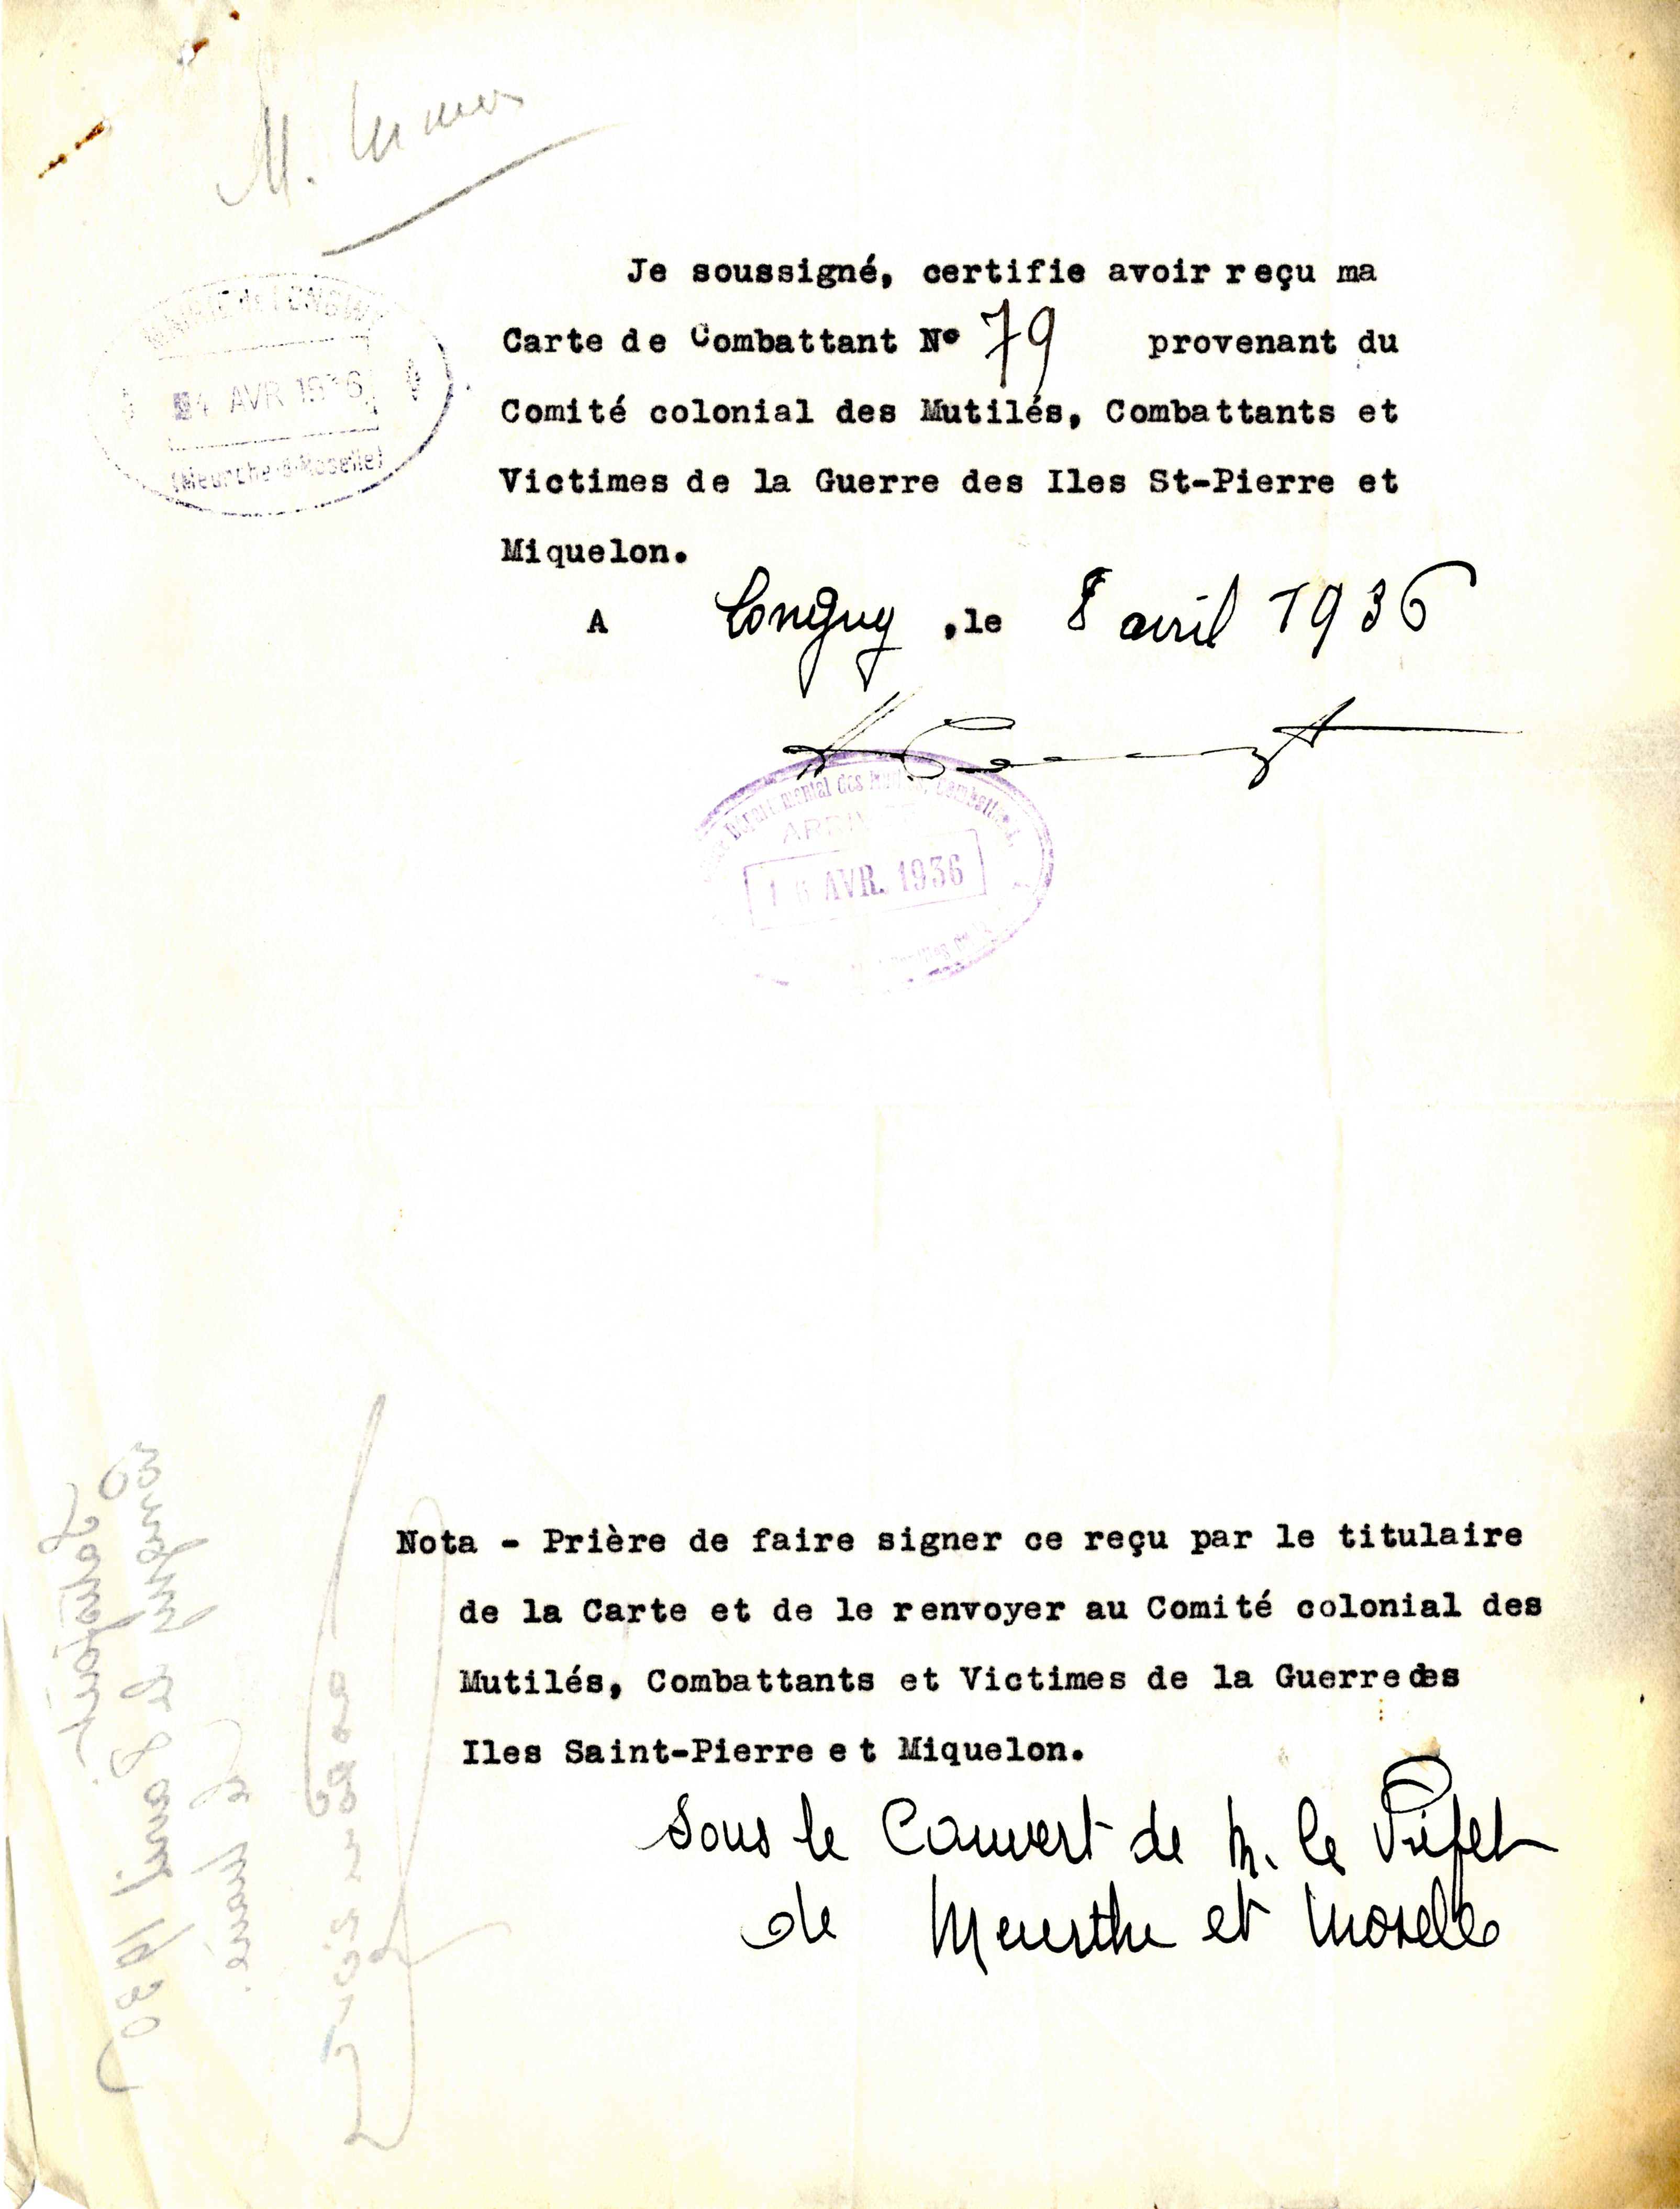 M.
Je soussigné, certifie avoir reçu ma
Carte de Combattant N° 79 provenant du
Comité colonial des Mutilés, Combattants et
Victimes de la Guerre des Iles St-Pierre et
Miquelon.
A Longwy ,le 8 avril 1936
MAIRIE de LONGWY
AVR 1936
(Meurthe-&-Moselle)
Départemental des Mutilés, Combattants
ARRIVÉE
AVR. 1936
Nota - Prière de faire signer ce reçu par le titulaire
de la Carte et de le renvoyer au Comité colonial des
Mutilés, Combattants et Victimes de la Guerre des
Iles Saint-Pierre et Miquelon.
Sous le Couvert de M. le Préfet
de Meurthe et Moselle